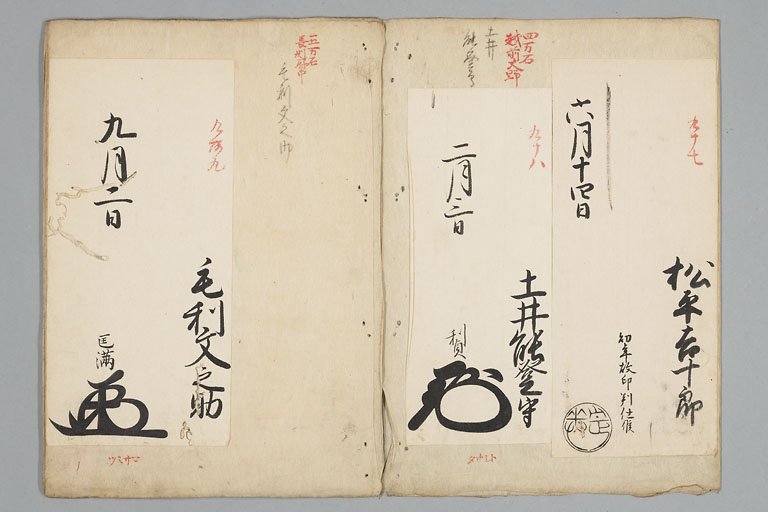 九十七
六月十四日
松平吉十郎
初年故印判仕候
四万石
越前大野
土井
能登守
九十八
二月三日
土井能登守
利貞
五万石
長州府中
毛利文之助
九月二日
毛利文之助
匡満